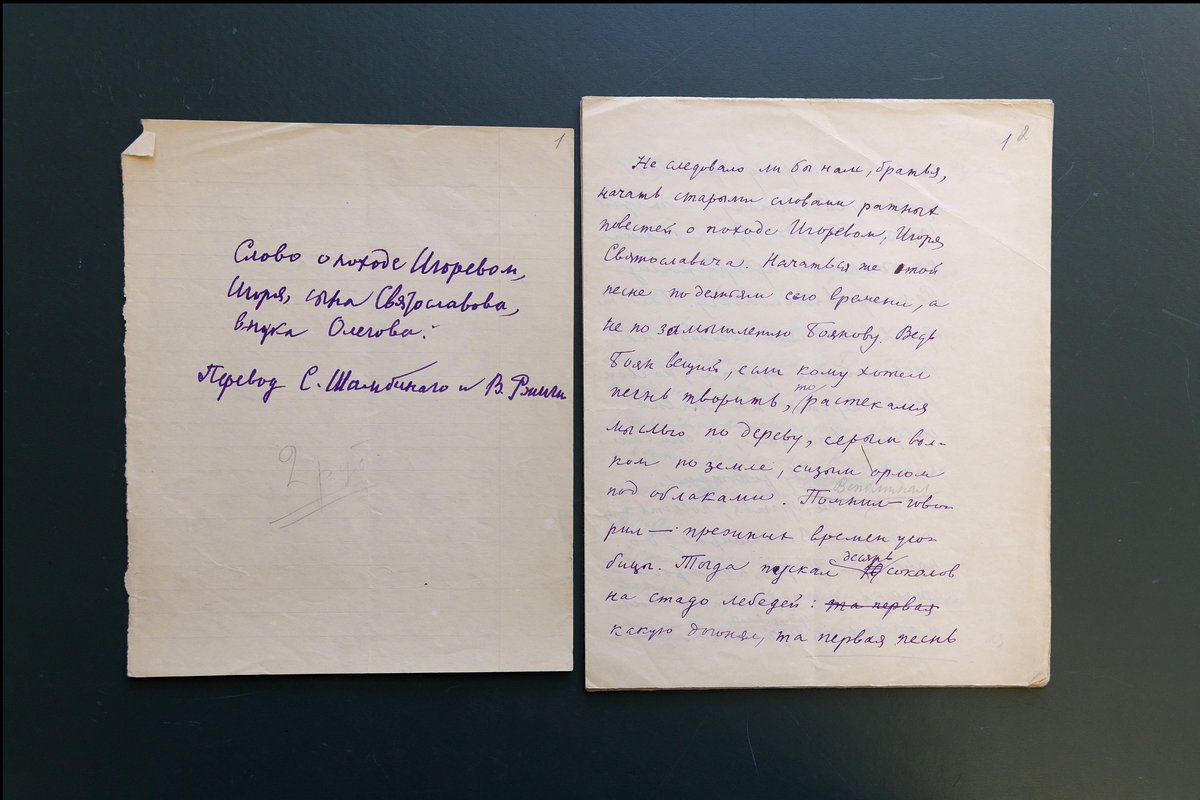 1
Слово о походе Игоревом,
Игоря, сына Святославова,
внука Олегова.
Перевод С. Шамбинаго и В. Ржиги
2
1 2
Не следовало ли бы нам, братья,
начать старыми словами ратных
повестей о походе Игоревом, Игоря
Святославича. Начаться же этой
песне по деяньям сего времени, а
не по замышлению Боянову. Ведь
Боян вещий, если кому хотел
песнь творить, то растекался
мыслью по дереву, серым вол-
ком по земле, сизым орлом
Вспоминал
под облаками. Помнил — гово-
рил — прежних времен усо-
бицы. Тогда пускал десять соколов
на стадо лебедей: та первая
какую догонял, та первая песнь